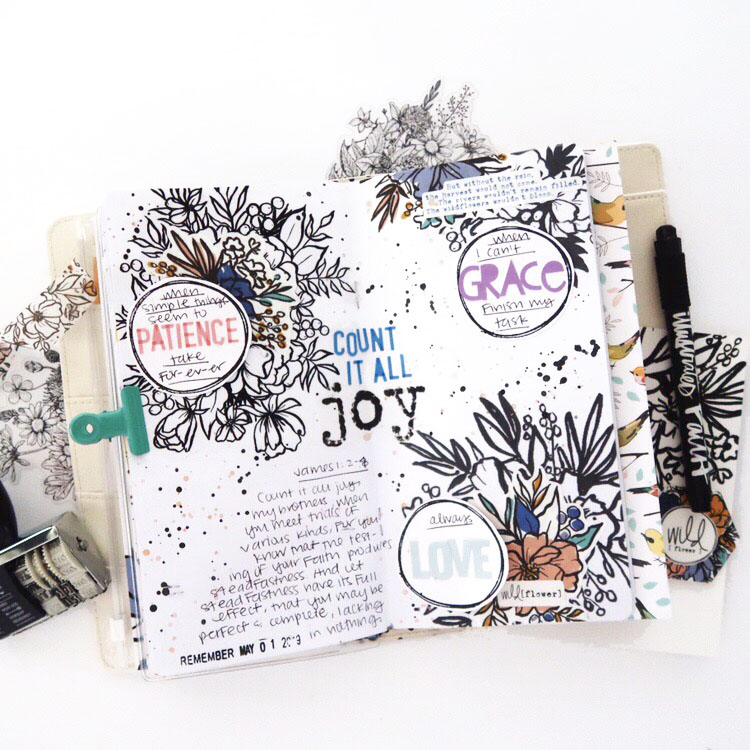 when
simple things
seem to
PATIENCE
take
for-ev-er
COUNT
IT ALL
joy
James 1:2-4
Count it all joy
my brothers when
you meet trials of
various kinds, for you
know that the test-
ing of your Faith produces
steadfastness. And let
steadfastness have its Full
effect, that you may be
perfect & complete, lacking
in nothing.
REMEMBER MAY 01 2019
But without the rain,
The harvest would not come
The rivers wouldn't remain filled
wildflowers wouldn't bloom.
when
I can't
GRACE
Finish my
task
always
LOVE
wild [flower]
Illustrated Faith
wild
flower